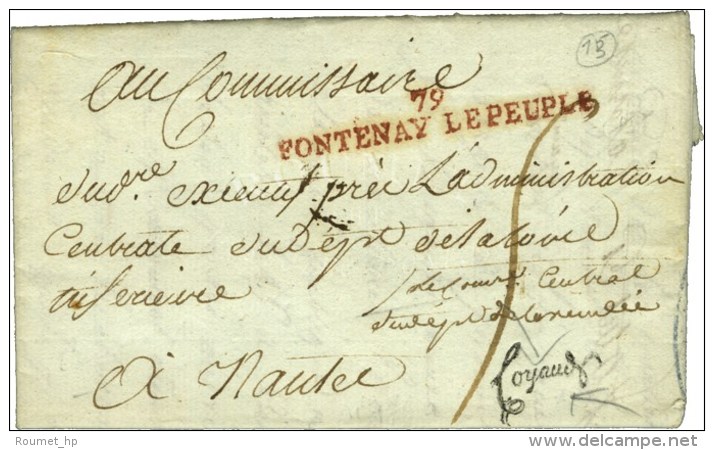 13
Au Commissaire
79
FONTENAY LE PEUPLE
du d.re executif près L'administration
Centrale du Dépt de la Loire
inferieure
Le Comre Central
du dépt de la vendée
à Nantes
Coyaud
Roumet_hp
delcampe.net